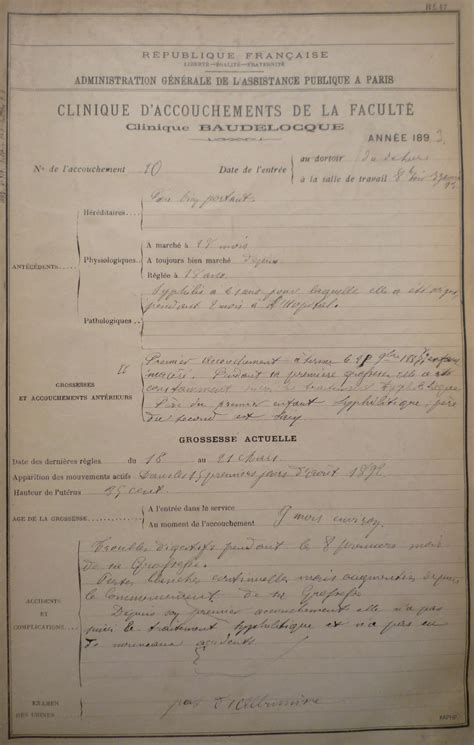 RÉPUBLIQUE FRANÇAISE
LIBERTÉ—ÉGALITÉ—FRATERNITÉ
ADMINISTRATION GÉNÉRALE DE L'ASSISTANCE PUBLIQUE A PARIS
CLINIQUE D'ACCOUCHEMENTS DE LA FACULTÉ
Clinique BAUDELOCQUE
ANNÉE 1893
Nº de l'accouchement 10
Date de l'entrée
au dortoir
à la salle de travail 8
bien portants
Héréditaires
ANTÉCÉDENTS
Physiologiques
A marché à 18 mois
A toujours bien marché depuis
Réglée à 18 ans
Syphilis à 21 ans pour laquelle elle a été
pendant 2 mois à l'Hôpital
Pathologiques
GROSSESSES
ET ACCOUCHEMENTS ANTÉRIEURS
II
Premier accouchement à terme le
Pendant sa première grossesse elle a
constamment suivi le traitement
Père du premier enfant syphilitique, père
du second est sain
GROSSESSE ACTUELLE
Date des dernières règles du 18 au 21 Mars
Apparition des mouvements actifs Dans les 15 premiers jours d'Août 1892
Hauteur de l'utérus 35 cent.
AGE DE LA GROSSESSE
A l'entrée dans le service
Au moment de l'accouchement
9 mois environ
ACCIDENTS
ET
COMPLICATIONS
Troubles digestifs pendant les 8 premiers mois
de sa grossesse
Pertes blanches continuelles mais augmentées depuis
le commencement de sa grossesse
Depuis son premier accouchement elle n'a pas
suivi le traitement syphilitique et n'a pas eu
de nouveaux accidents
EXAMEN
DES URINES
pas d'albumine